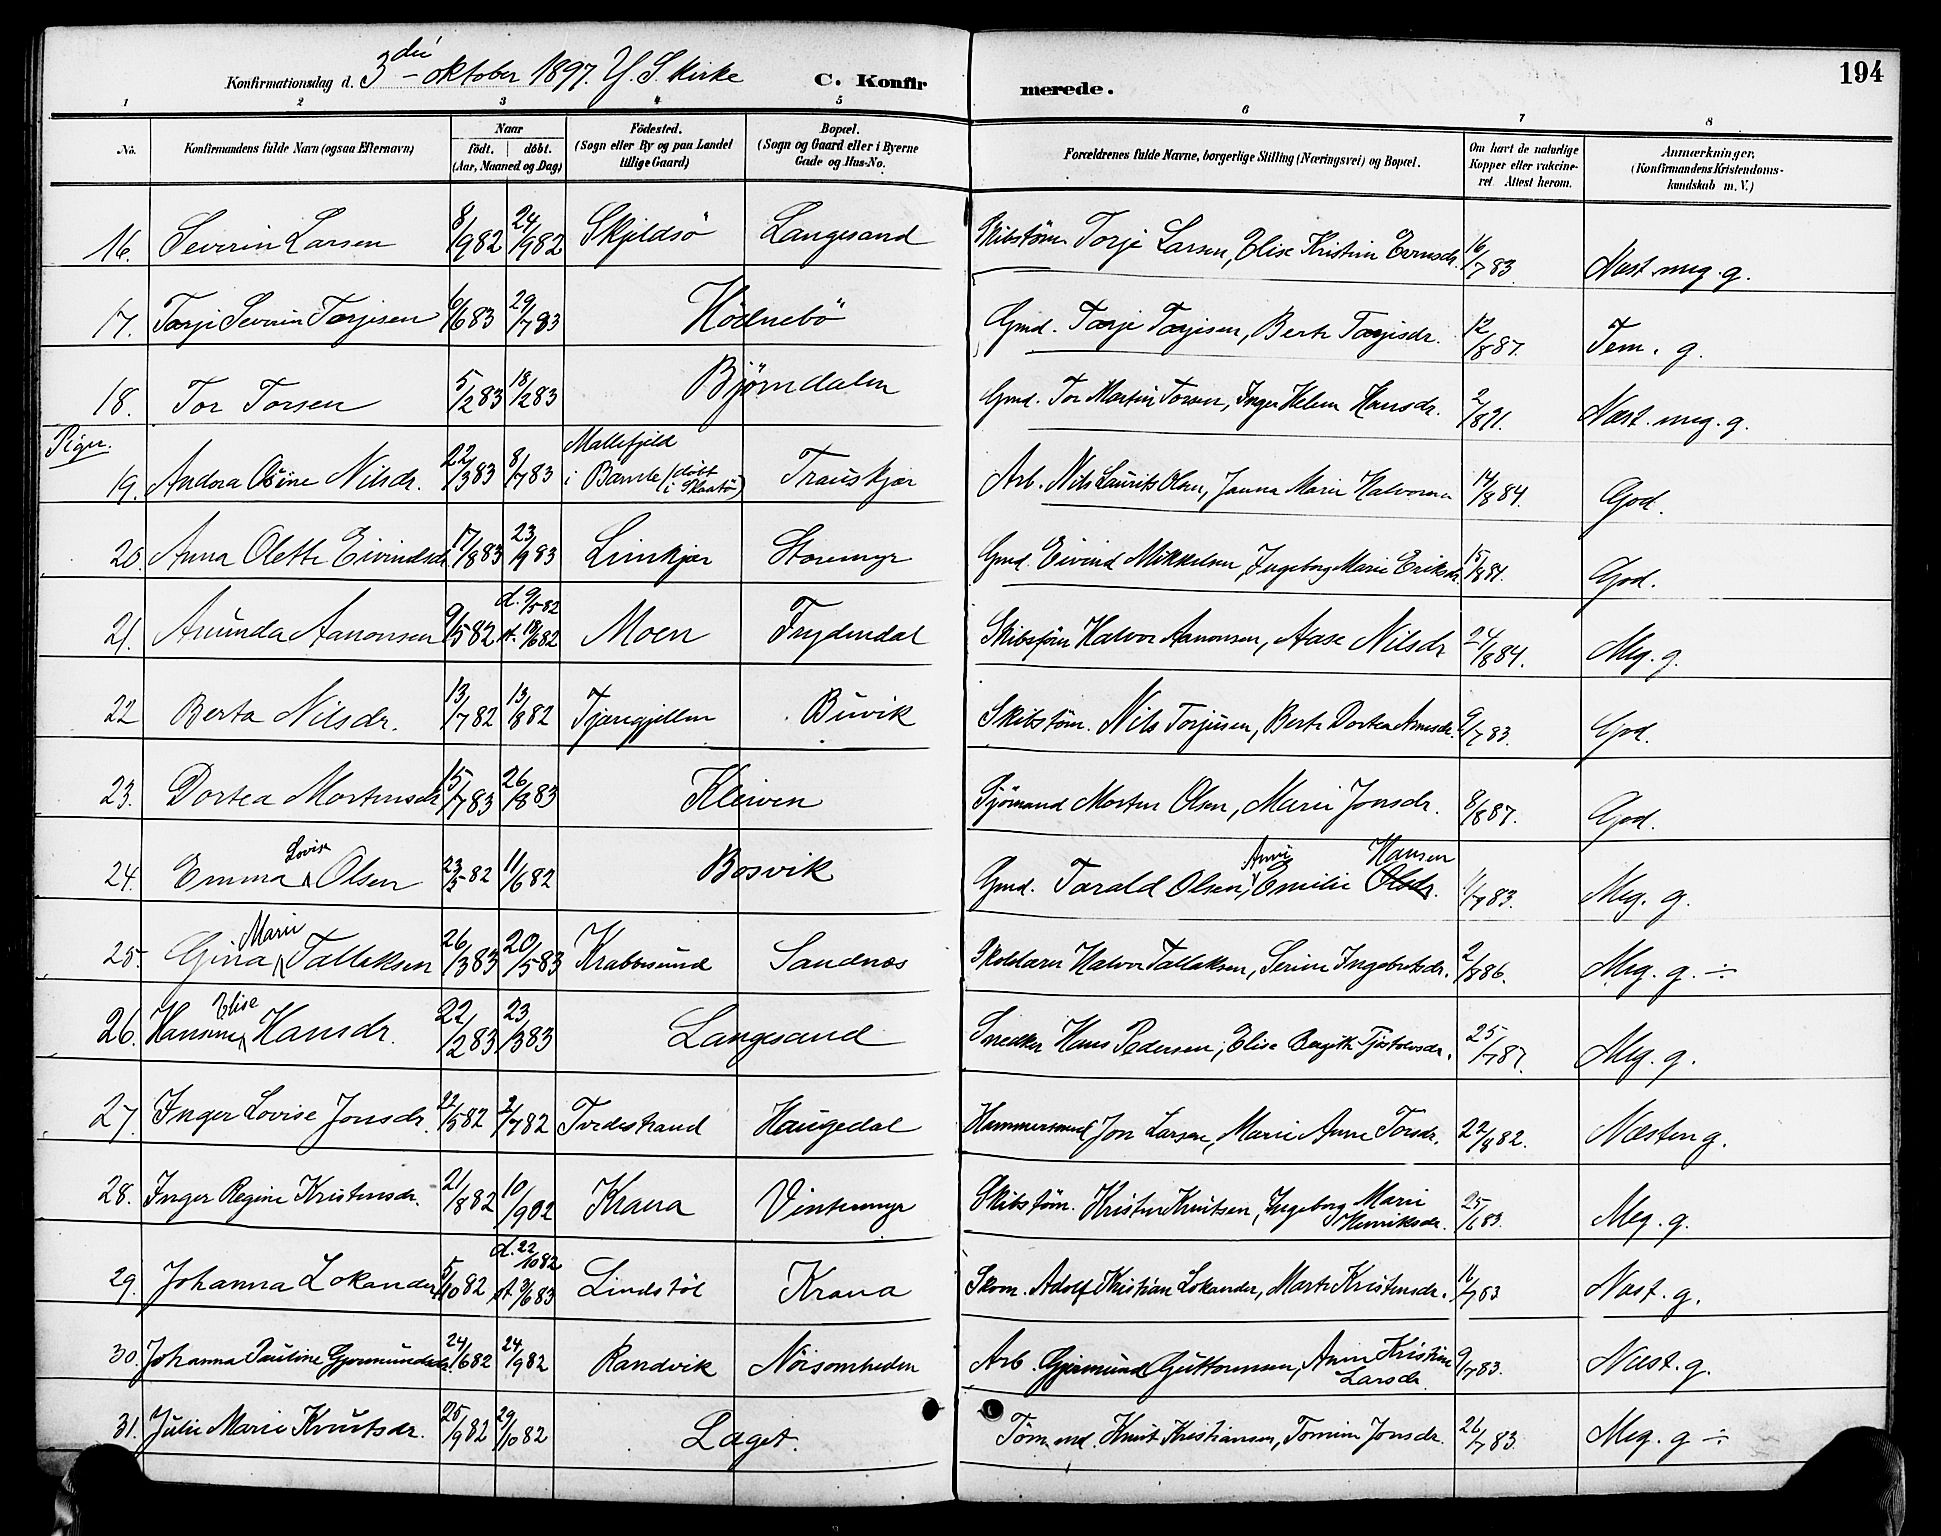 194
Konfirmationsdag d. 3die oktober 1897. Y. S. kirke C. Konfirmerede.
1 2 3 4 5 6 7 8
No. Konfirmandens fulde Navn (ogsaa Efternavn) Naar födt. döbt. (Aar, Maaned og Dag) Födested. (Sogn eller By og paa Landet tillige Gaard) Bopæl. (Sogn og Gaard eller i Byerne Gade og Hus-No. Forældrenes fulde Navne, borgerlige Stilling (Næringsvei) og Bopæl. Om havt de naturlige Kopper eller vakcineret. Attest herom. Anmærkninger. (Konfirmandens Kristendomskundskab m. V.)
16. Severin Larsen 8/9 82 24/9 82 Skjeldsö Langesand Skibstöm. Torje Larsen, Elise Kristine Evensdr. 16/7 83. Næst meg. g.
17. Tarje Severin Tarjesen 6/6 83 29/7 83 Ködnebö Gmd. Tarje Tarjesen, Berte Tarjesdr. 12/8 87. Tem. g.
18. Tor Torsen 5/2 83 18/2 83 Björndalen Gmd. Tor Martin Torsen, Inger Helene Hansdr. 2/8 91. Næst. meg. g.
Piger.
19. Andora Osine Nilsdr. 22/3 83 8/7 83 Mallefjeld i Bamle (döbt i Skaatö) Trauskjær Arb. Nils Laurits Olsen, Janna Marie Halvorsen 14/8 84. God.
20. Anna Olette Eivindsdr 17/8 83 23/9 83 Linkjær Storemyr Gmd. Eivind Mikkelsen, Ingeborg Marie Eriksdr. 15/8 84. God.
21. Amunda Aanonsen 9/5 82 d. 9/5 82 st. 18/6 82 Moen Frydendal Skibstöm Halvor Aanonsen, Aase Nilsdr 24/8 84. Meg. g.
22 Berta Nilsdr. 13/7 82 13/8 82 Tjæregjellen Buvik Skibstöm. Nils Torjusen, Berte Dortea Arnesdr. 9/7 83. God.
23. Dortea Mortensdr 15/7 83 26/8 83 Kleiven Sjömand Morten Olsen, Marie Jonsdr. 8/8 87. God.
24. Emma Lovise Olsen 23/5 82 11/6 82 Bosvik Gmd. Tarald Olsen, Anne Emilie Hansen Olsdr. 11/7 83. Meg. g.
25. Gina Marie Tallaksen 26/3 83 20/5 83 Krabbesund Sandnæs Skolelærer Halvor Tallaksen, Serine Ingebretsdr. 2/8 86. Meg. g. ÷
26. Hansine Elise Hansdr. 22/2 83 23/3 83 Langesand Snedker Hans Pedersen, Elise Bergithe Tjöstolvsdr. 25/7 87. Meg. g.
27. Inger Lovise Jonsdr. 22/5 82 2/7 82 Tvedestrand Haugedal Hammersmed Jon Larsen, Marie Anne Torsdr. 22/8 82. Næsten g.
28. Inger Regine Kristensdr. 21/8 82 10/9 82 Krana Vintermyr Skibstöm. Kristen Knutsen, Ingeborg Marie Henriksdr. 25/6 83. Meg. g.
29. Johanna Lokander 5/10 82 d. 22/10 82 st. 3/6 83 Lindstöl Krana Skom. Adolf Kristian Lokander, Marte Kristensdr. 16/7 83 Næst. g.
30. Johanna Pauline Gjermundsdr. 24/6 82 24/9 82 Randvik Nöisomheden Arb. Gjermund Guttormsen, Anne Kristine Larsdr. 9/7 83. Næst. g.
31. Julie Marie Knutsdr. 25/9 82 29/10 82 Laget. Tömmd. Knut Kristiansen, Tomine Jonsdr. 26/7 83. Meg. g ÷